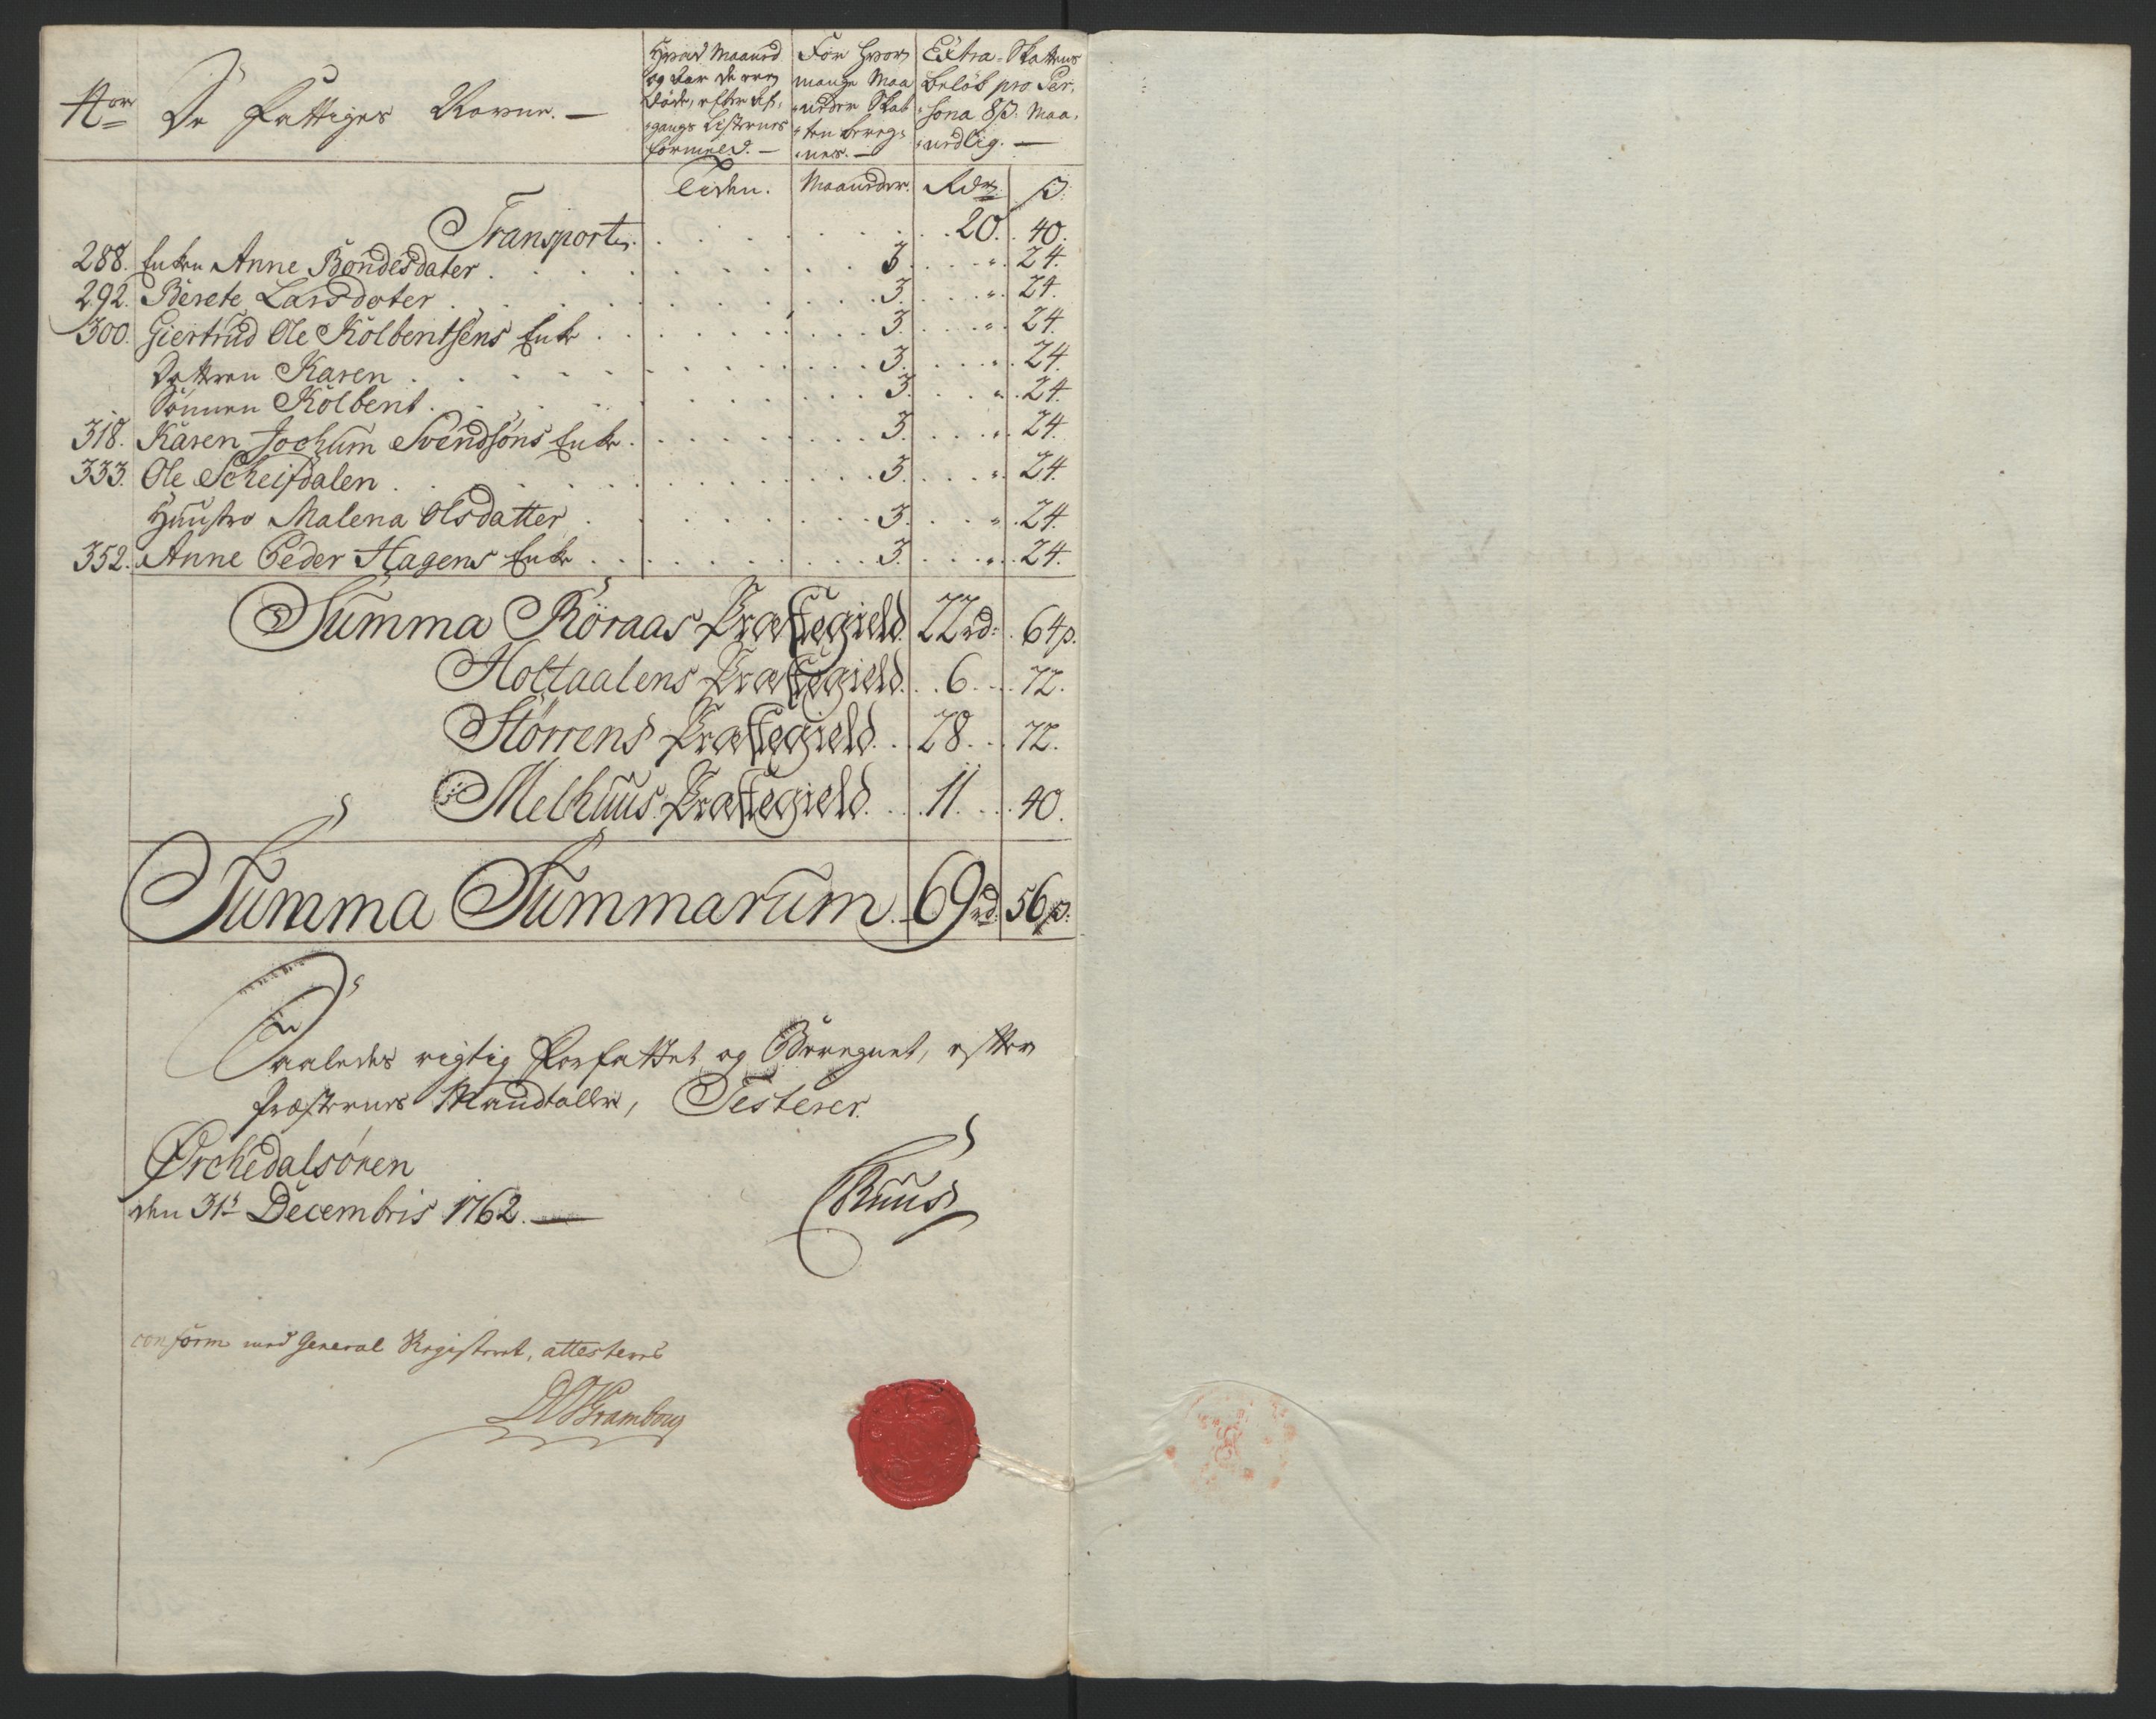 Nor De Fattiges Navne. —
Hvad Maaned
og Aar de ere
døde, efter Af,
gangs Listernes
formeld. —
For hvor
mange Maa
neder Skat
ten bereg,
nes. —
Extra-Skattens
beløb pro Per,
sona 8 ß. Maa,
nedlig. —
Tiden. Maaneder. Rdr ß.
Transport. 20. 40.
288. Enken Anne Bondesdater. 3. „ 24.
292. Berete Larsdoter. 3. „ 24.
300. Giertrud Ole Kolbentsens Enke. 3. „ 24.
Datteren Karen. 3. „ 24.
Sønnen Kolbent. 3. „ 24.
318. Karen Jochum Svendsøns Enke. 3. „ 24.
333. Ole Scheifdalen. 3. „ 24.
Huustro Malena Olsdatter. 3. „ 24.
352. Anne Peder Hagens Enke. 3. „ 24.
Summa Röraas Præstegield. 22 rd: 64 ß.
Holtaalens Præstegield. 6. 72.
Störrens Præstegield. 28. 72.
Melhuus Præstegield. 11. 40.
Summa Summarum. 69 rd. 56 ß.
Saaledes rigtig forfattet og Beregnet, efter
Præsternes Mandtaller, Testerer.
Ørchedalsøren
den 31t Decembris 1762. —
Ruus
conform med General Registeret, attesteres